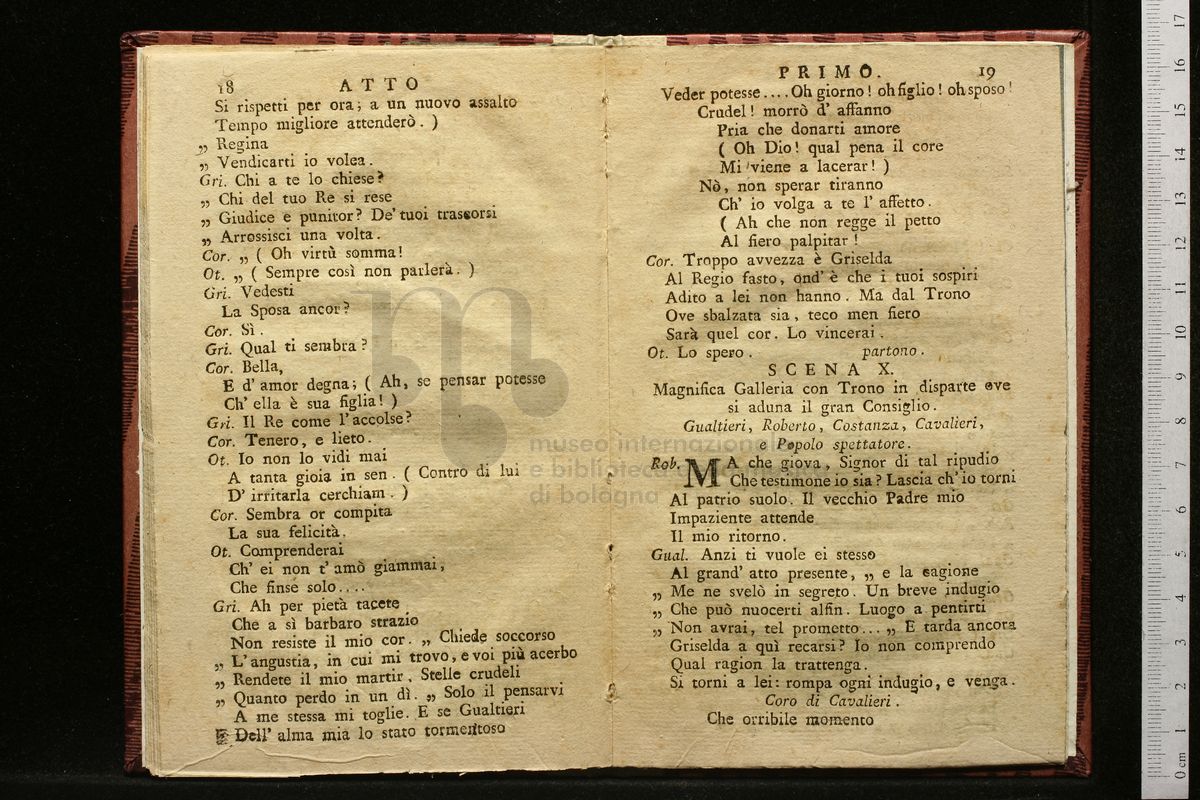 18 ATTO
Si rispetti per ora; a un nuovo assalto
Tempo migliore attenderò. )
„ Regina
„ Vendicarti io volea.
Gri. Chi a te lo chiese?
„ Chi del tuo Re si rese
„ Giudice e punitor? De' tuoi trascorsi
„ Arrossisci una volta.
Cor. „ ( Oh virtù somma!
Ot. „ ( Sempre così non parlerà. )
Gri. Vedesti
La Sposa ancor?
Cor. Sì.
Gri. Qual ti sembra?
Cor. Bella,
E d' amor degna; ( Ah, se pensar potesse
Ch' ella è sua figlia! )
Gri. Il Re come l'accolse?
Cor. Tenero, e lieto.
Ot. Io non lo vidi mai
A tanta gioia in sen. ( Contro di lui
D' irritarla cerchiam. )
Cor. Sembra or compita
La sua felicità.
Ot. Comprenderai
Ch' ei non t' amò giammai,
Che finse solo....
Gri. Ah per pietà tacete
Che a sì barbaro strazio
Non resiste il mio cor. „ Chiede soccorso
„ L'angustia, in cui mi trovo, e voi più acerbo
„ Rendete il mio martir. Stelle crudeli
„ Quanto perdo in un dì. „ Solo il pensarvi
A me stessa mi toglie. E se Gualtieri
Dell' alma mia lo stato tormentoso
PRIMO. 19
Veder potesse.... Oh giorno! oh figlio! oh sposo!
Crudel! morrò d' affanno
Pria che donarti amore
( Oh Dio! qual pena il core
Mi viene a lacerar! )
Nò, non sperar tiranno
Ch' io volga a te l' affetto.
( Ah che non regge il petto
Al fiero palpitar!
Cor. Troppo avvezza è Griselda
Al Regio fasto, ond' è che i tuoi sospiri
Adito a lei non hanno. Ma dal Trono
Ove sbalzata sia, teco men fiero
Sarà quel cor. Lo vincerai.
Ot. Lo spero. partono.
SCENA X.
Magnifica Galleria con Trono in disparte ove
si aduna il gran Consiglio.
Gualtieri, Roberto, Costanza, Cavalieri,
e Popolo spettatore.
Rob. MA che giova, Signor di tal ripudio
Che testimone io sia? Lascia ch' io torni
Al patrio suolo. Il vecchio Padre mio
Impaziente attende
Il mio ritorno.
Gual. Anzi ti vuole ei stesso
Al grand' atto presente, „ e la cagione
„ Me ne svelò in segreto. Un breve indugio
„ Che può nuocerti alfin. Luogo a pentirti
„ Non avrai, tel prometto... „ E tarda ancora
Griselda a quì recarsi? Io non comprendo
Qual ragion la trattenga.
Si torni a lei: rompa ogni indugio, e venga.
Coro di Cavalieri.
Che orribile momento
museo internazionale
e biblioteca
di bologna
0 cm 1 2 3 4 5 6 7 8 9 10 11 12 13 14 15 16 17